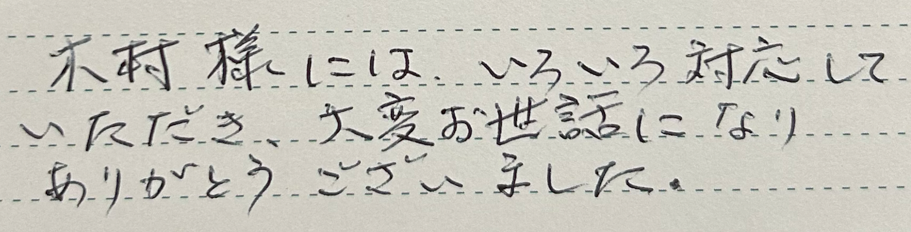 木村様には、いろいろ対応して
いただき、大変お世話になり
ありがとうございました。